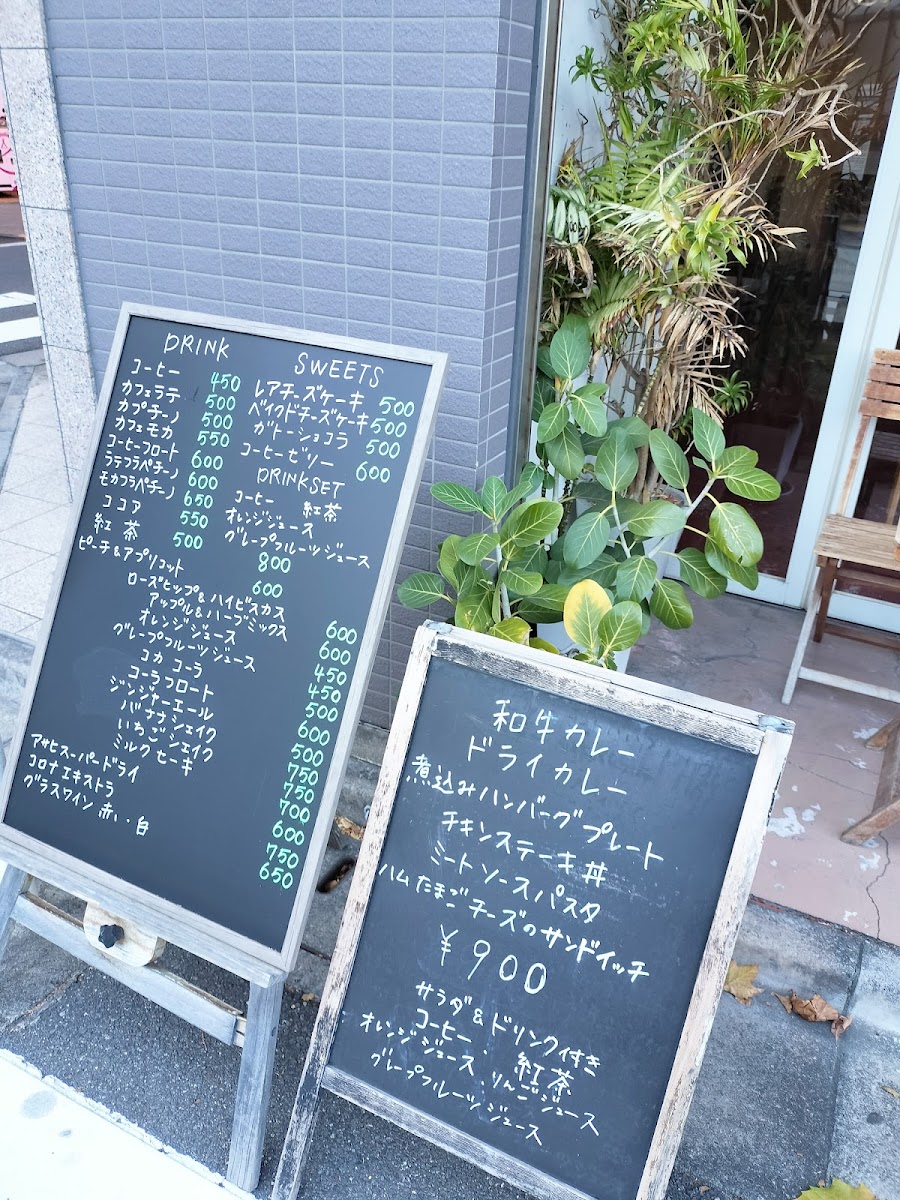 DRINK
コーヒー 450
カフェラテ 500
カプチーノ 500
カフェモカ 550
コーヒーフロート 600
ラテフラペチーノ 600
モカフラペチーノ 650
ココア 550
紅茶 500
ピーチ&アプリコット 600
ローズヒップ&ハイビスカス 600
アップル&ハーブミックス 600
オレンジジュース 450
グレープフルーツジュース 450
コカコーラ 500
コーラフロート 600
ジンジャーエール 500
バナナシェイク 750
いちごシェイク 750
ミルクセーキ 700
アサヒスーパードライ 600
コロナエキストラ 750
グラスワイン 赤・白 650
SWEETS
レアチーズケーキ 500
ベイクドチーズケーキ 500
ガトーショコラ 500
コーヒーゼリー 600
DRINKSET
コーヒー 紅茶
オレンジジュース
グレープフルーツジュース
800
和牛カレー
ドライカレー
煮込みハンバーグプレート
チキンステーキ丼
ミートソースパスタ
ハムたまごチーズのサンドイッチ
¥900
サラダ&ドリンク付き
コーヒー・紅茶
オレンジジュース・りんごジュース
グレープフルーツジュース